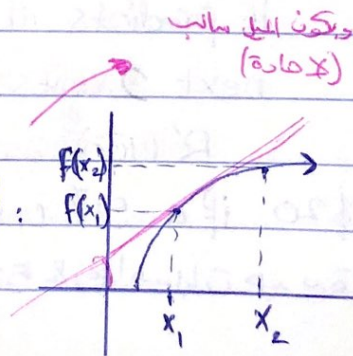 ويكون الميل سالب
(لا حادة)
F(x₂)
F(x₁)
:
x₁ x₂